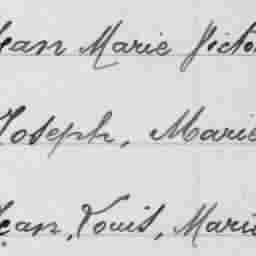 Jean Marie Victor
Joseph, Marie
Jean, Louis, Marie